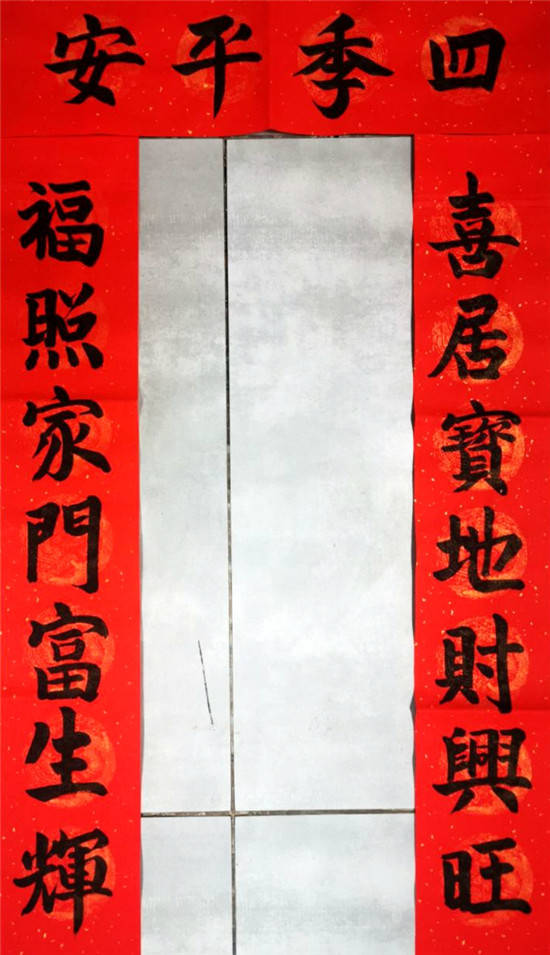 四季平安
喜居寶地財興旺
福照家門富生輝